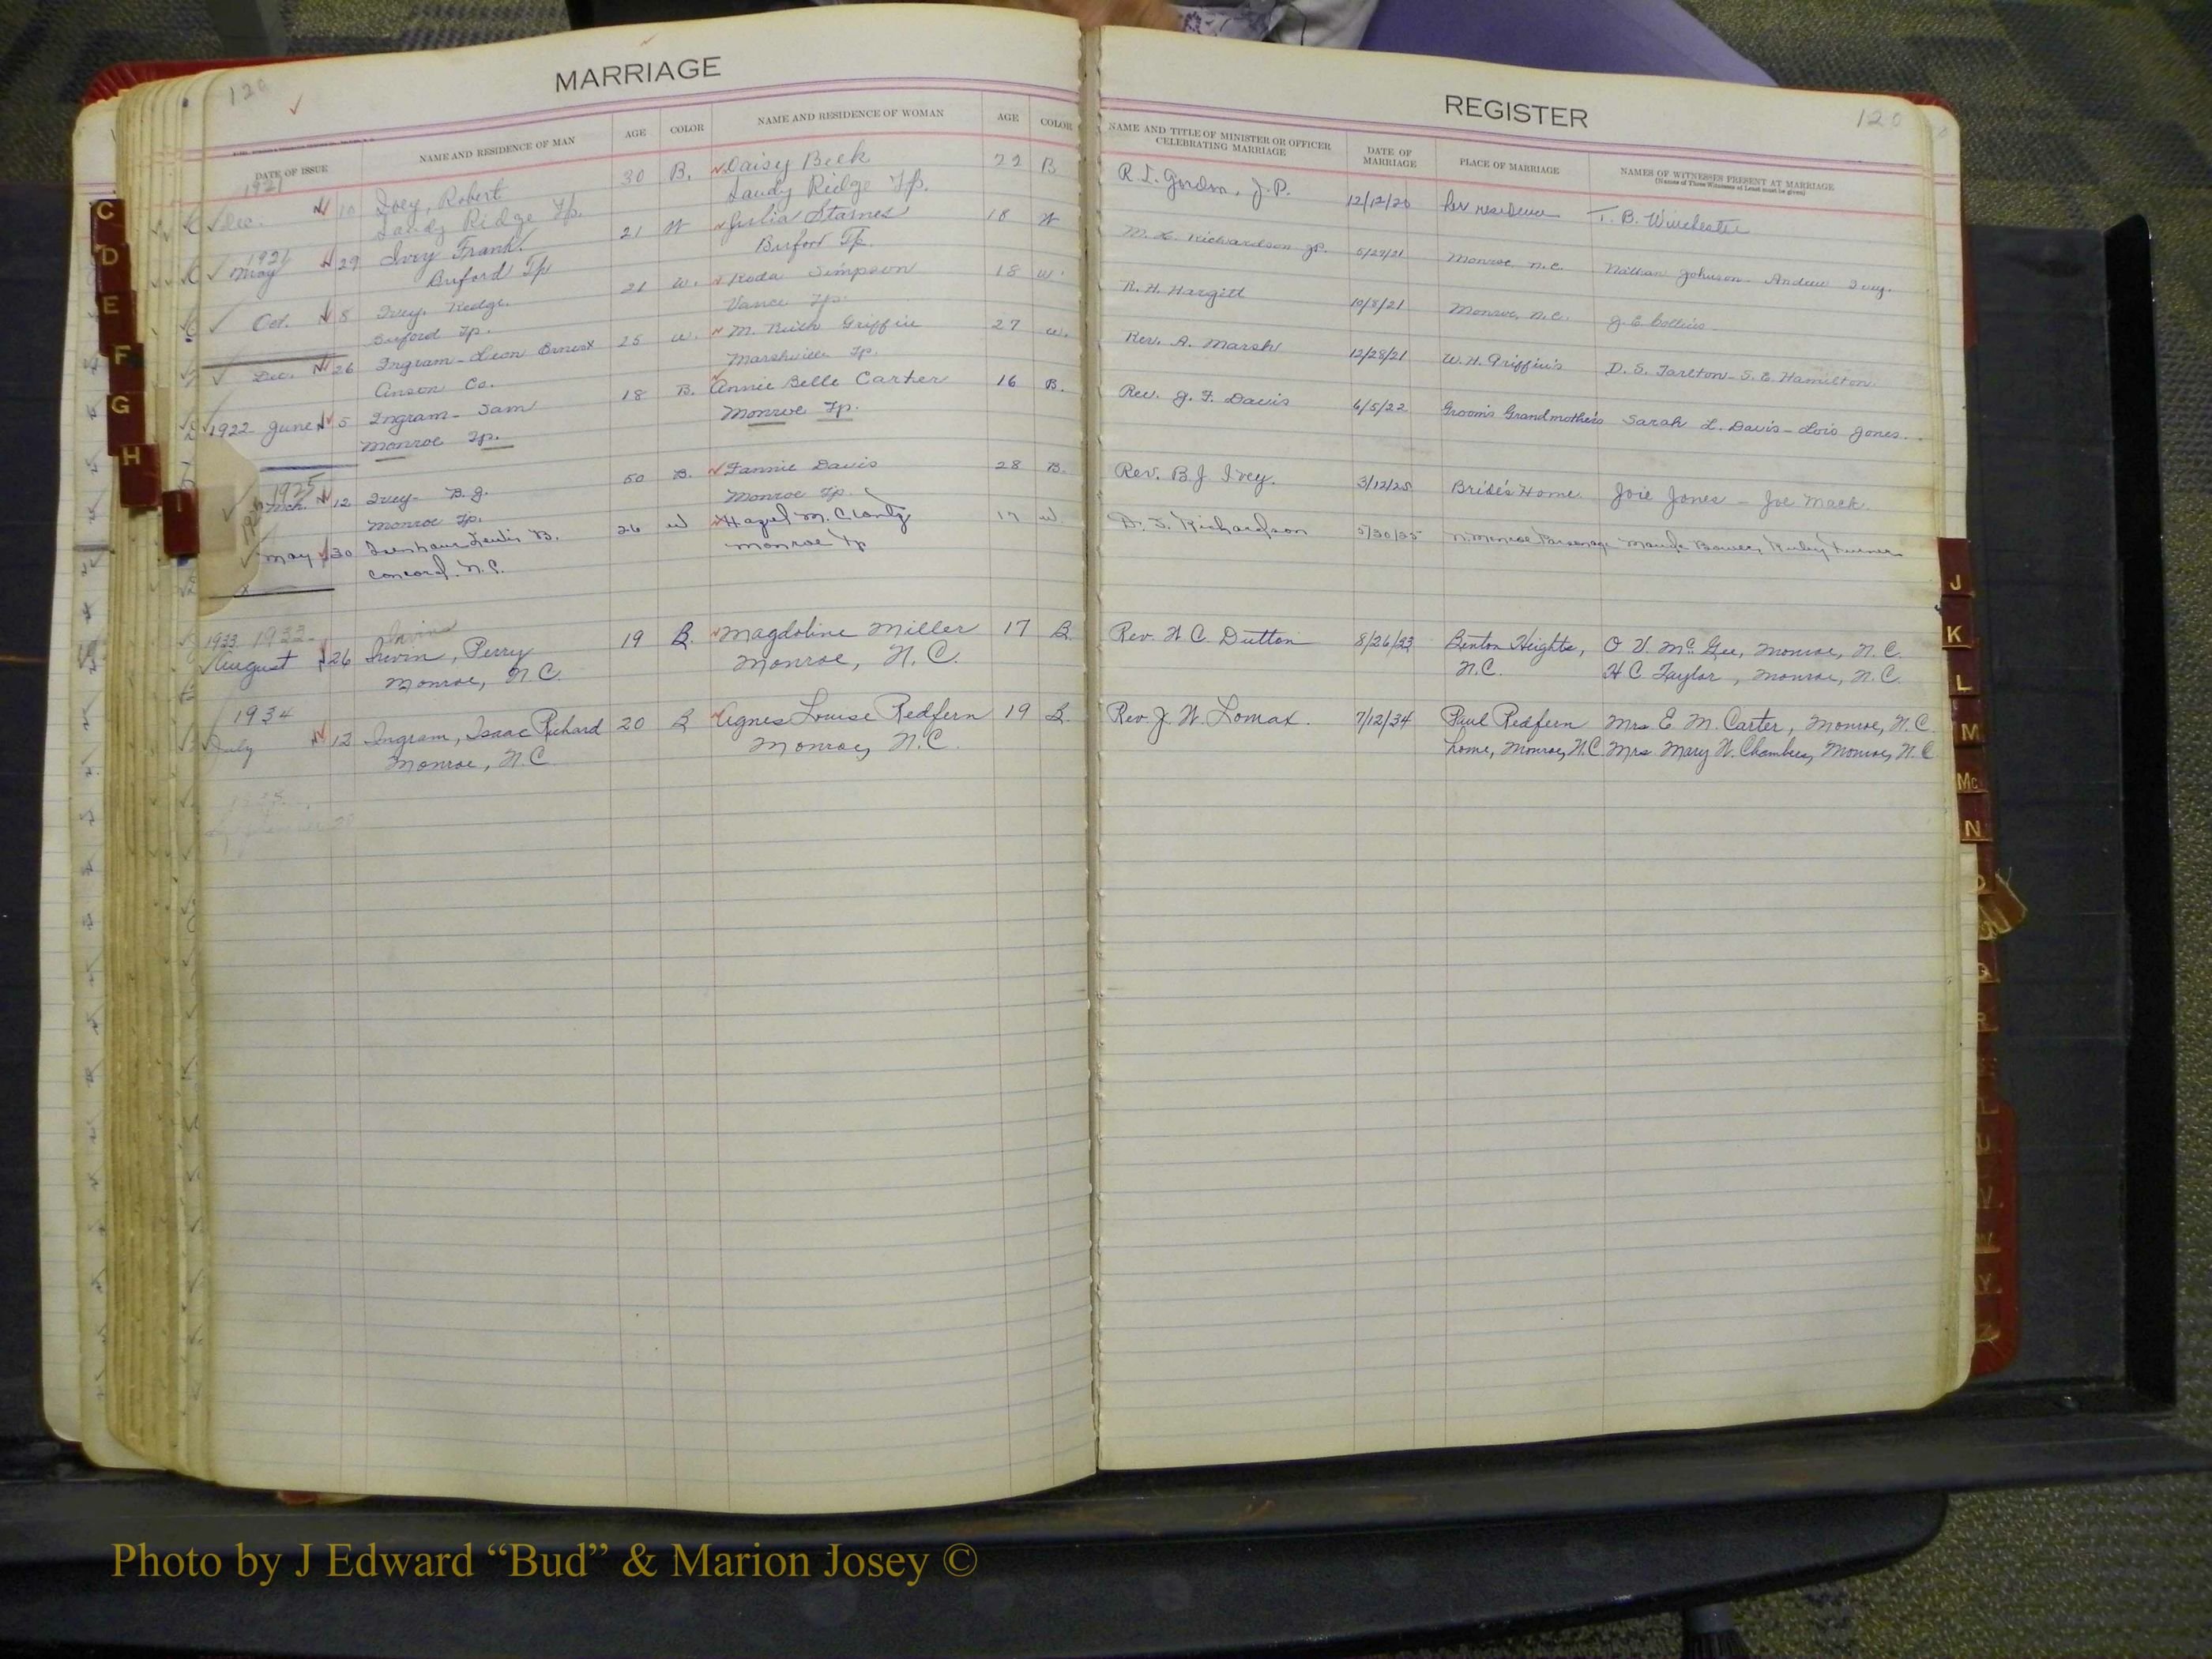 120
MARRIAGE
DATE OF ISSUE NAME AND RESIDENCE OF MAN AGE COLOR NAME AND RESIDENCE OF WOMAN AGE COLOR
1921
Dec. 10 Ivey, Robert 30 B. Daisy Belk 22 B
Sandy Ridge Tp. Sandy Ridge Tp.
1921
May 29 Ivey Frank 21 W Julia Starnes 18 W
Buford Tp Buford Tp.
Oct. 8 Ivey, 21 W. Koda Simpson 18 W.
Buford Tp. Vance Tp.
Dec. 26 Ingram - Leon Ernest 25 W. M. Griffin 27 W.
Anson Co. Marshville Tp.
1922 June 5 Ingram - Sam 18 B. Annie Belle Carter 16 B.
Monroe Tp. Monroe Tp.
1925
Mch. 12 Ivey - B. J. 50 B. Fannie Davis 28 B.
Monroe Tp. Monroe Tp.
May 30 Isenhaur Lewis B. 26 W Hazel M. Clontz 17 W
Concord N.C. Monroe Tp
1933 1933 Irvin
August 26 Irvin, Perry 19 B. Magdoline Miller 17 B.
Monroe, N.C. Monroe, N.C.
1934
July 12 Ingram, Isaac Richard 20 B Agnes Louise Redfern 19 B.
Monroe, N.C. Monroe, N.C.
REGISTER
120
NAME AND TITLE OF MINISTER OR OFFICER CELEBRATING MARRIAGE DATE OF MARRIAGE PLACE OF MARRIAGE NAMES OF WITNESSES PRESENT AT MARRIAGE
(Names of Three Witnesses at Least must be given)
R. L. Gordon, J. P. 12/12/20 her residence T. B. Winchester
M. L. Richardson J.P. 5/29/21 Monroe, N.C. Johnson - Andrew Ivey.
R. H. Hargett 10/8/21 Monroe, N.C. J. E. Collins
Rev. A. Marsh 12/28/21 W. H. Griffin's D. S. Tarlton - S. E. Hamilton.
Rev. J. F. Davis 6/5/22 Groom's Grandmother's Sarah L. Davis - Lois Jones.
Rev. B J Ivey. 3/12/25 Bride's Home. Joie Jones - Joe Mack.
Richardson 5/30/25 N. Monroe Parsonage Ruby Turner
Rev. W C. Dutton 8/26/33 Benton Heights, O V. McGee, Monroe, N.C.
N.C. H C. Taylor, Monroe, N.C.
Rev. J. W. Lomax. 7/12/34 Paul Redfern Mrs E. M. Carter, Monroe, N.C.
home, Monroe, N.C. Mrs Mary W. Chambers, Monroe, N.C.
C
D
E
F
G
H
I
J
K
L
M
Mc
N
Photo by J Edward “Bud” & Marion Josey ©